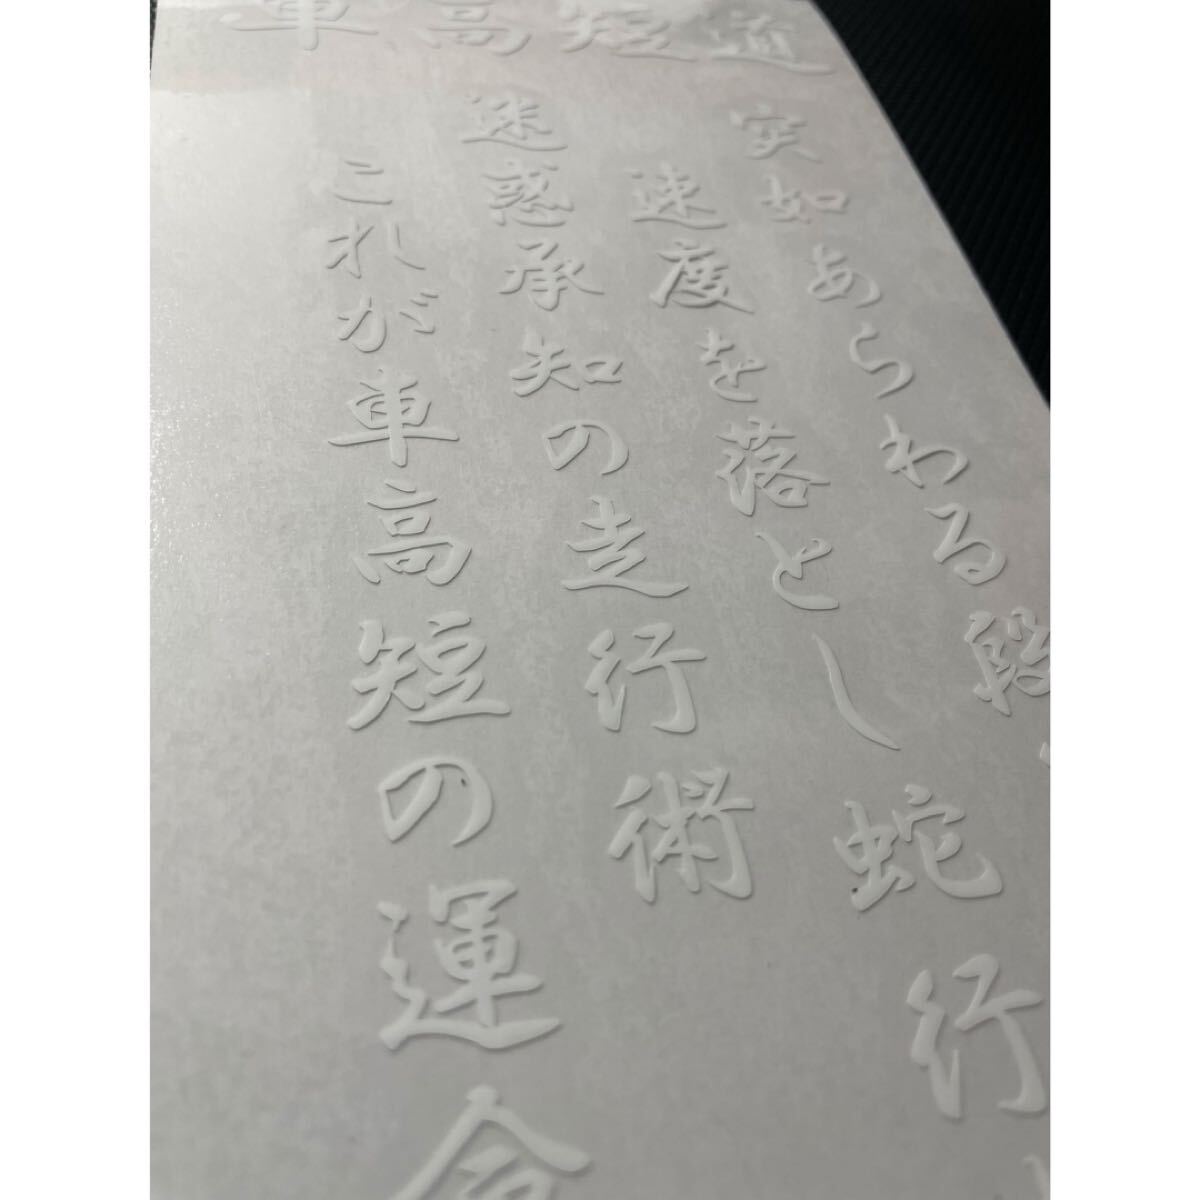 車高短道
突如あらわる段
速度を落とし蛇行
迷惑承知の走行術
これが車高短の運命